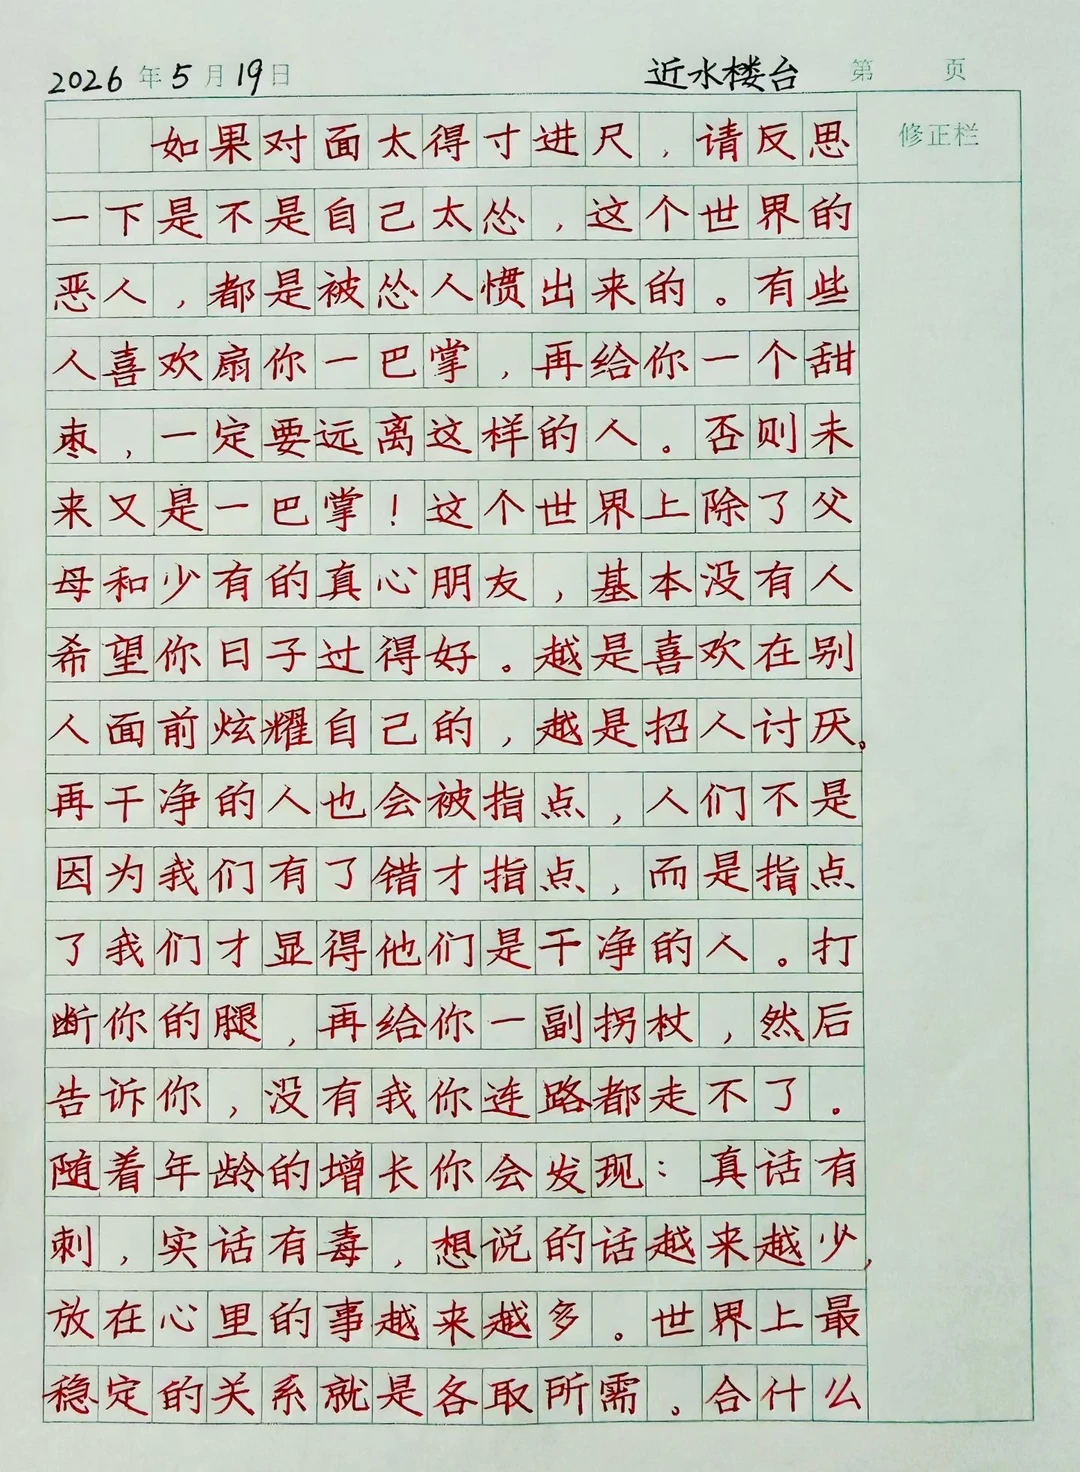 2026年5月19日 近水楼台 第 页
修正栏
如果对面太得寸进尺，请反思
一下是不是自己太怂，这个世界的
恶人，都是被怂人惯出来的。有些
人喜欢扇你一巴掌，再给你一个甜
枣，一定要远离这样的人。否则未
来又是一巴掌！这个世界上除了父
母和少有的真心朋友，基本没有人
希望你日子过得好。越是喜欢在别
人面前炫耀自己的，越是招人讨厌。
再干净的人也会被指点，人们不是
因为我们有了错才指点，而是指点
了我们才显得他们是干净的人。打
断你的腿，再给你一副拐杖，然后
告诉你，没有我你连路都走不了。
随着年龄的增长你会发现：真话有
刺，实话有毒，想说的话越来越少，
放在心里的事越来越多。世界上最
稳定的关系就是各取所需。合什么